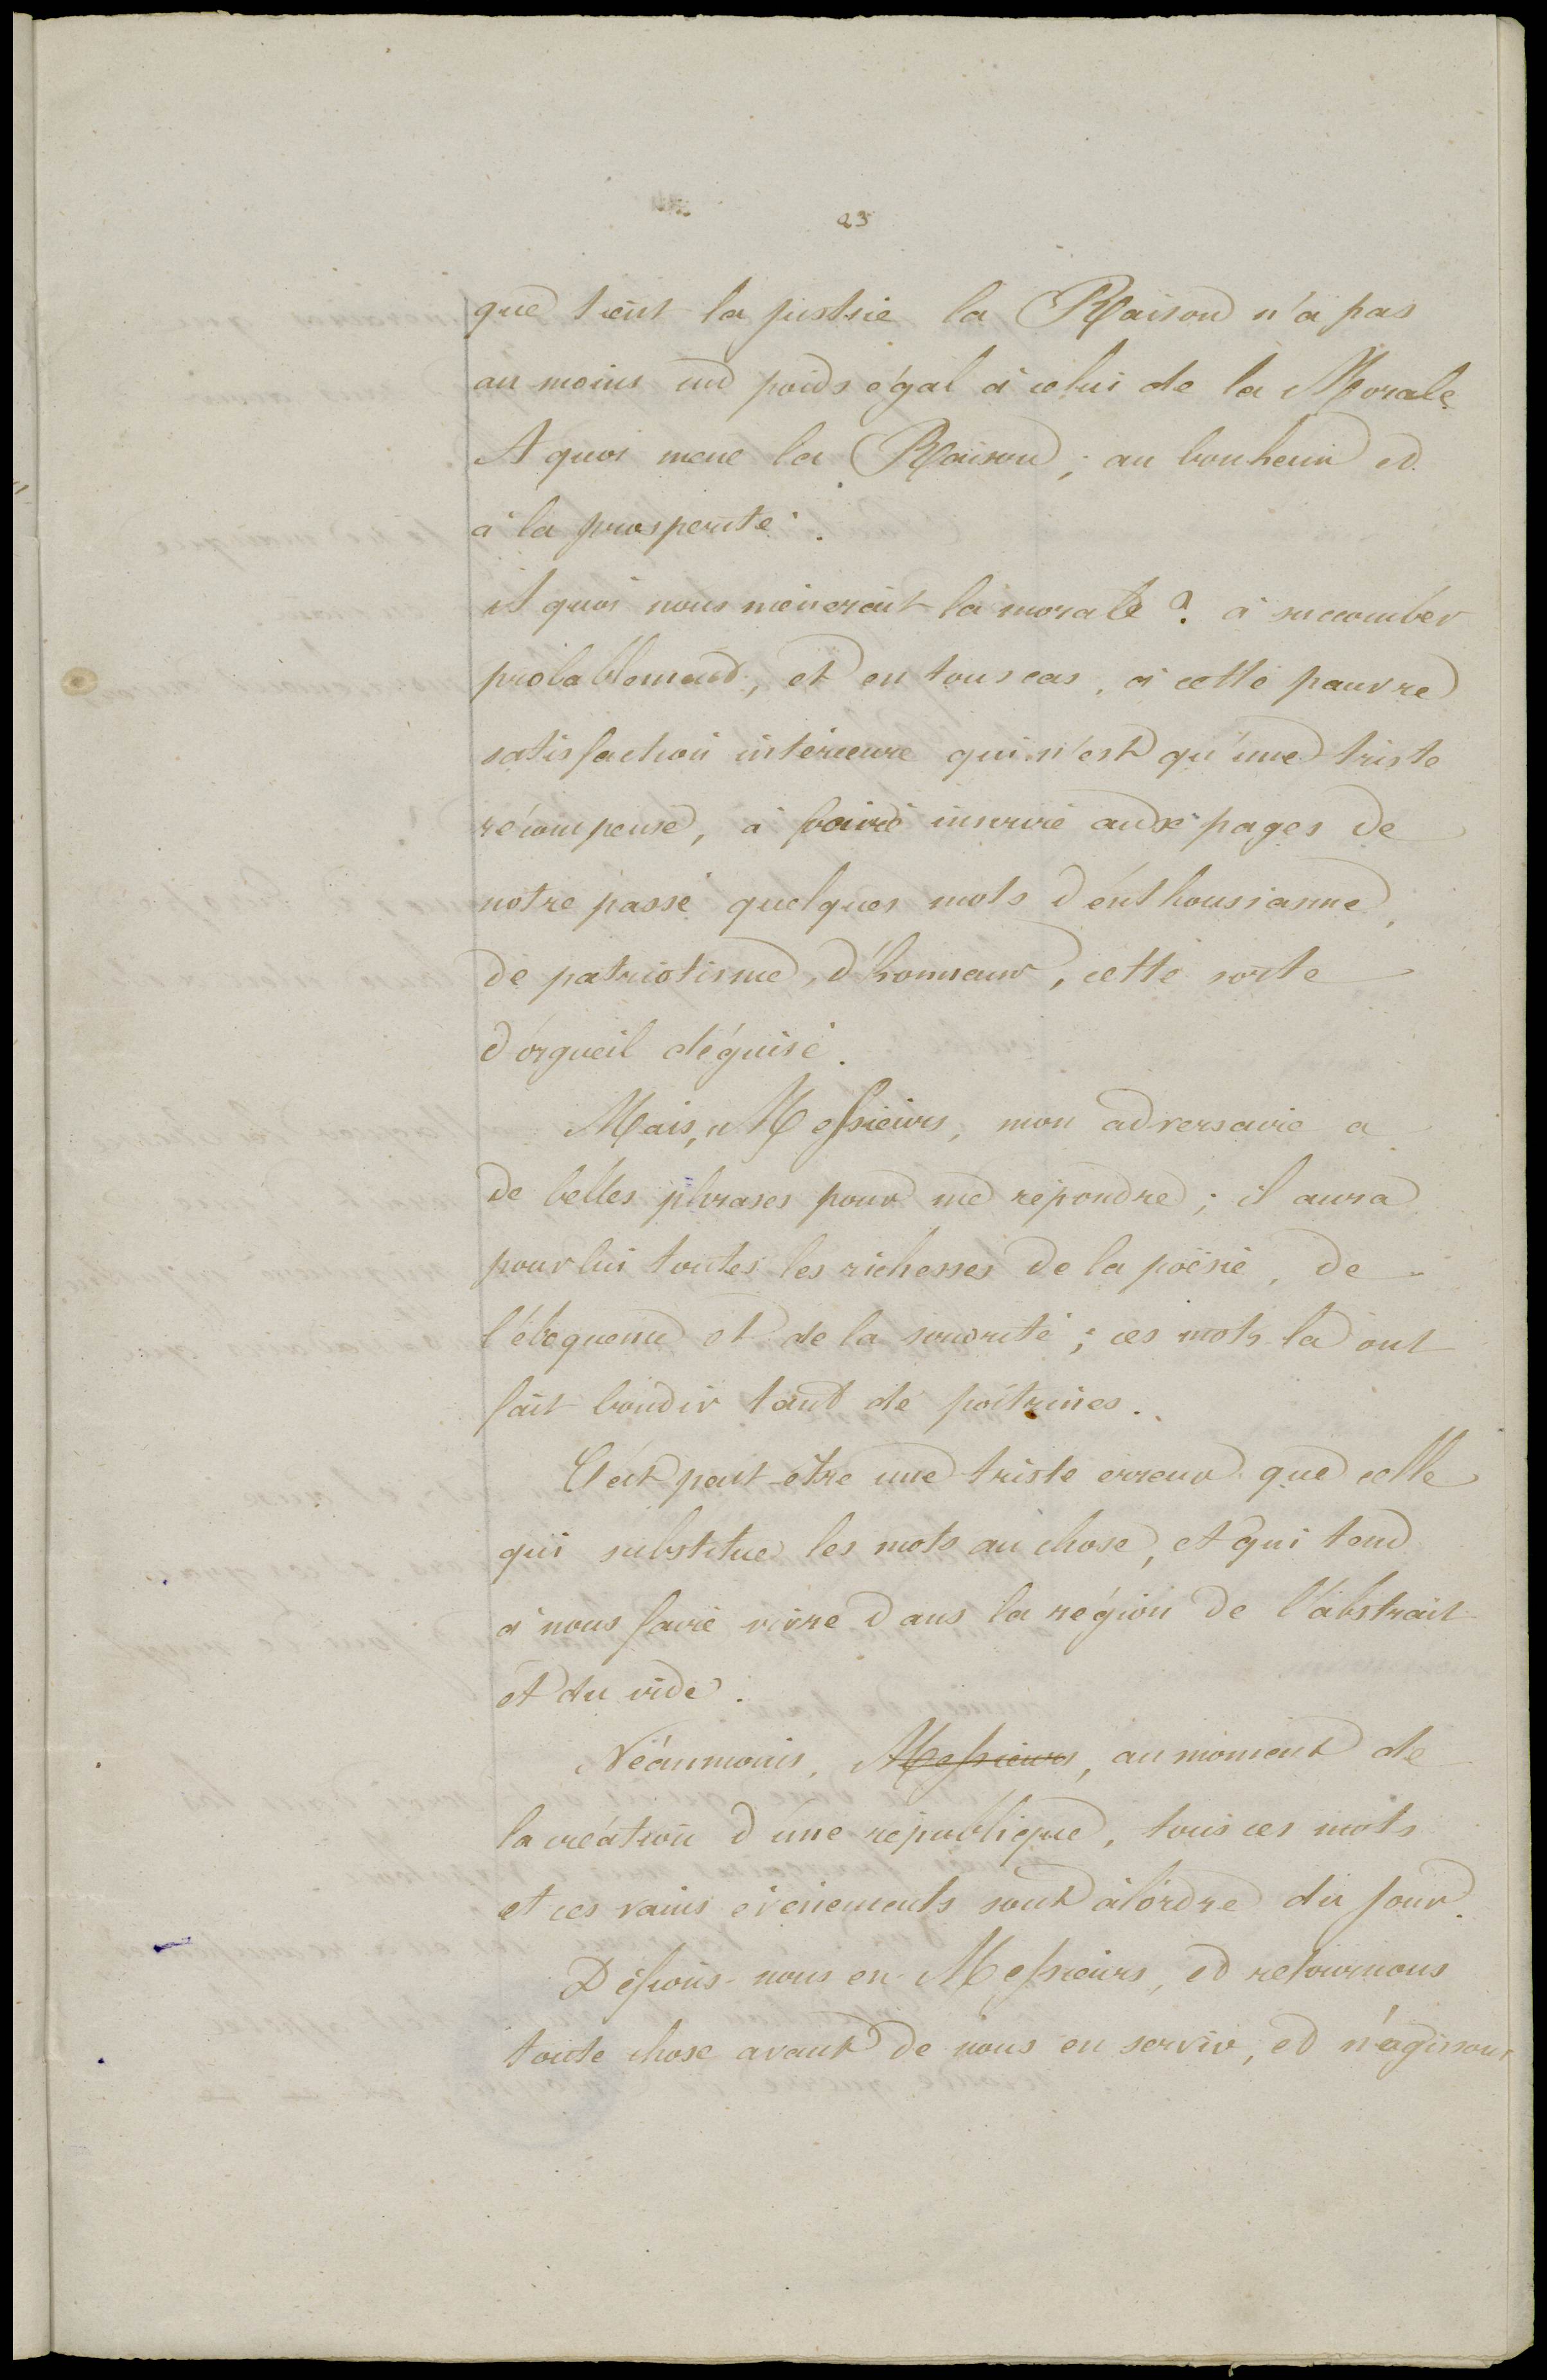 23
que tient la justice la Raison n'a pas
au moins un poids égal à celui de la Morale.
A quoi mene la Raison; au bonheur et
à la prosperité.
A quoi nous menerait la morale? à succomber
probablement, et en tous cas, à cette pauvre
satisfaction intérieure qui n'est qu'une triste
récompense, à faire inscrire aux pages de
notre passé quelques mots d'enthousiasme,
de patriotisme, d'honneur, cette sorte
d'orgueil déguisé.
Mais, Messieurs, mon adversaire a
de belles phrases pour me répondre; il aura
pour lui toutes les richesses de la poësie, de
l'éloquence et de la sonorité; ces mots là ont
fait bondir tant de poitrines.
C'est peut-être une triste erreur que celle
qui substitue les mots au chose, et qui tend
à nous faire vivre dans la région de l'abstrait
et du vide.
Néanmoins, Messieurs, au moment de
la création d'une république, tous ces mots
et ces vains évènements sont à l'ordre du jour.
Défions-nous en Messieurs, et retournons
toute chose avant de nous en servir, et n'agissons